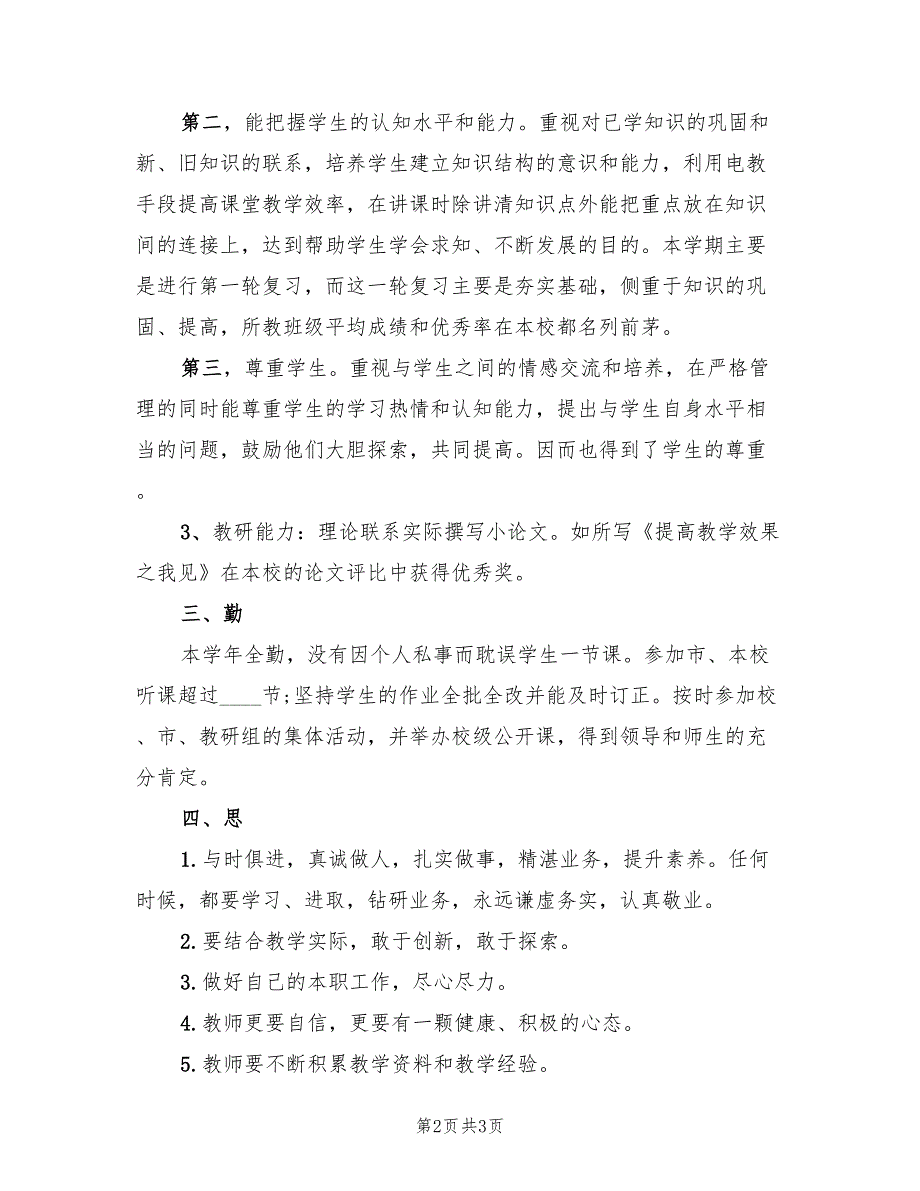 第二，能把握学生的认知水平和能力。重视对已学知识的巩固和
新、旧知识的联系，培养学生建立知识结构的意识和能力，利用电教
手段提高课堂教学效率，在讲课时除讲清知识点外能把重点放在知识
间的连接上，达到帮助学生学会求知、不断发展的目的。本学期主要
是进行第一轮复习，而这一轮复习主要是夯实基础，侧重于知识的巩
固、提高，所教班级平均成绩和优秀率在本校都名列前茅。
第三，尊重学生。重视与学生之间的情感交流和培养，在严格管
理的同时能尊重学生的学习热情和认知能力，提出与学生自身水平相
当的问题，鼓励他们大胆探索，共同提高。因而也得到了学生的尊重
。
3、教研能力：理论联系实际撰写小论文。如所写《提高教学效果
之我见》在本校的论文评比中获得优秀奖。
三、勤
本学年全勤，没有因个人私事而耽误学生一节课。参加市、本校
听课超过____节;坚持学生的作业全批全改并能及时订正。按时参加校
、市、教研组的集体活动，并举办校级公开课，得到领导和师生的充
分肯定。
四、思
1.与时俱进，真诚做人，扎实做事，精湛业务，提升素养。任何
时候，都要学习、进取，钻研业务，永远谦虚务实，认真敬业。
2.要结合教学实际，敢于创新，敢于探索。
3.做好自己的本职工作，尽心尽力。
4.教师更要自信，更要有一颗健康、积极的心态。
5.教师要不断积累教学资料和教学经验。
第2页 共3页